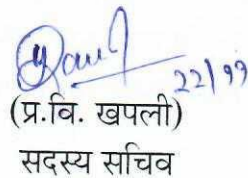 22/११
(प्र.वि. खपली)
सदस्य सचिव